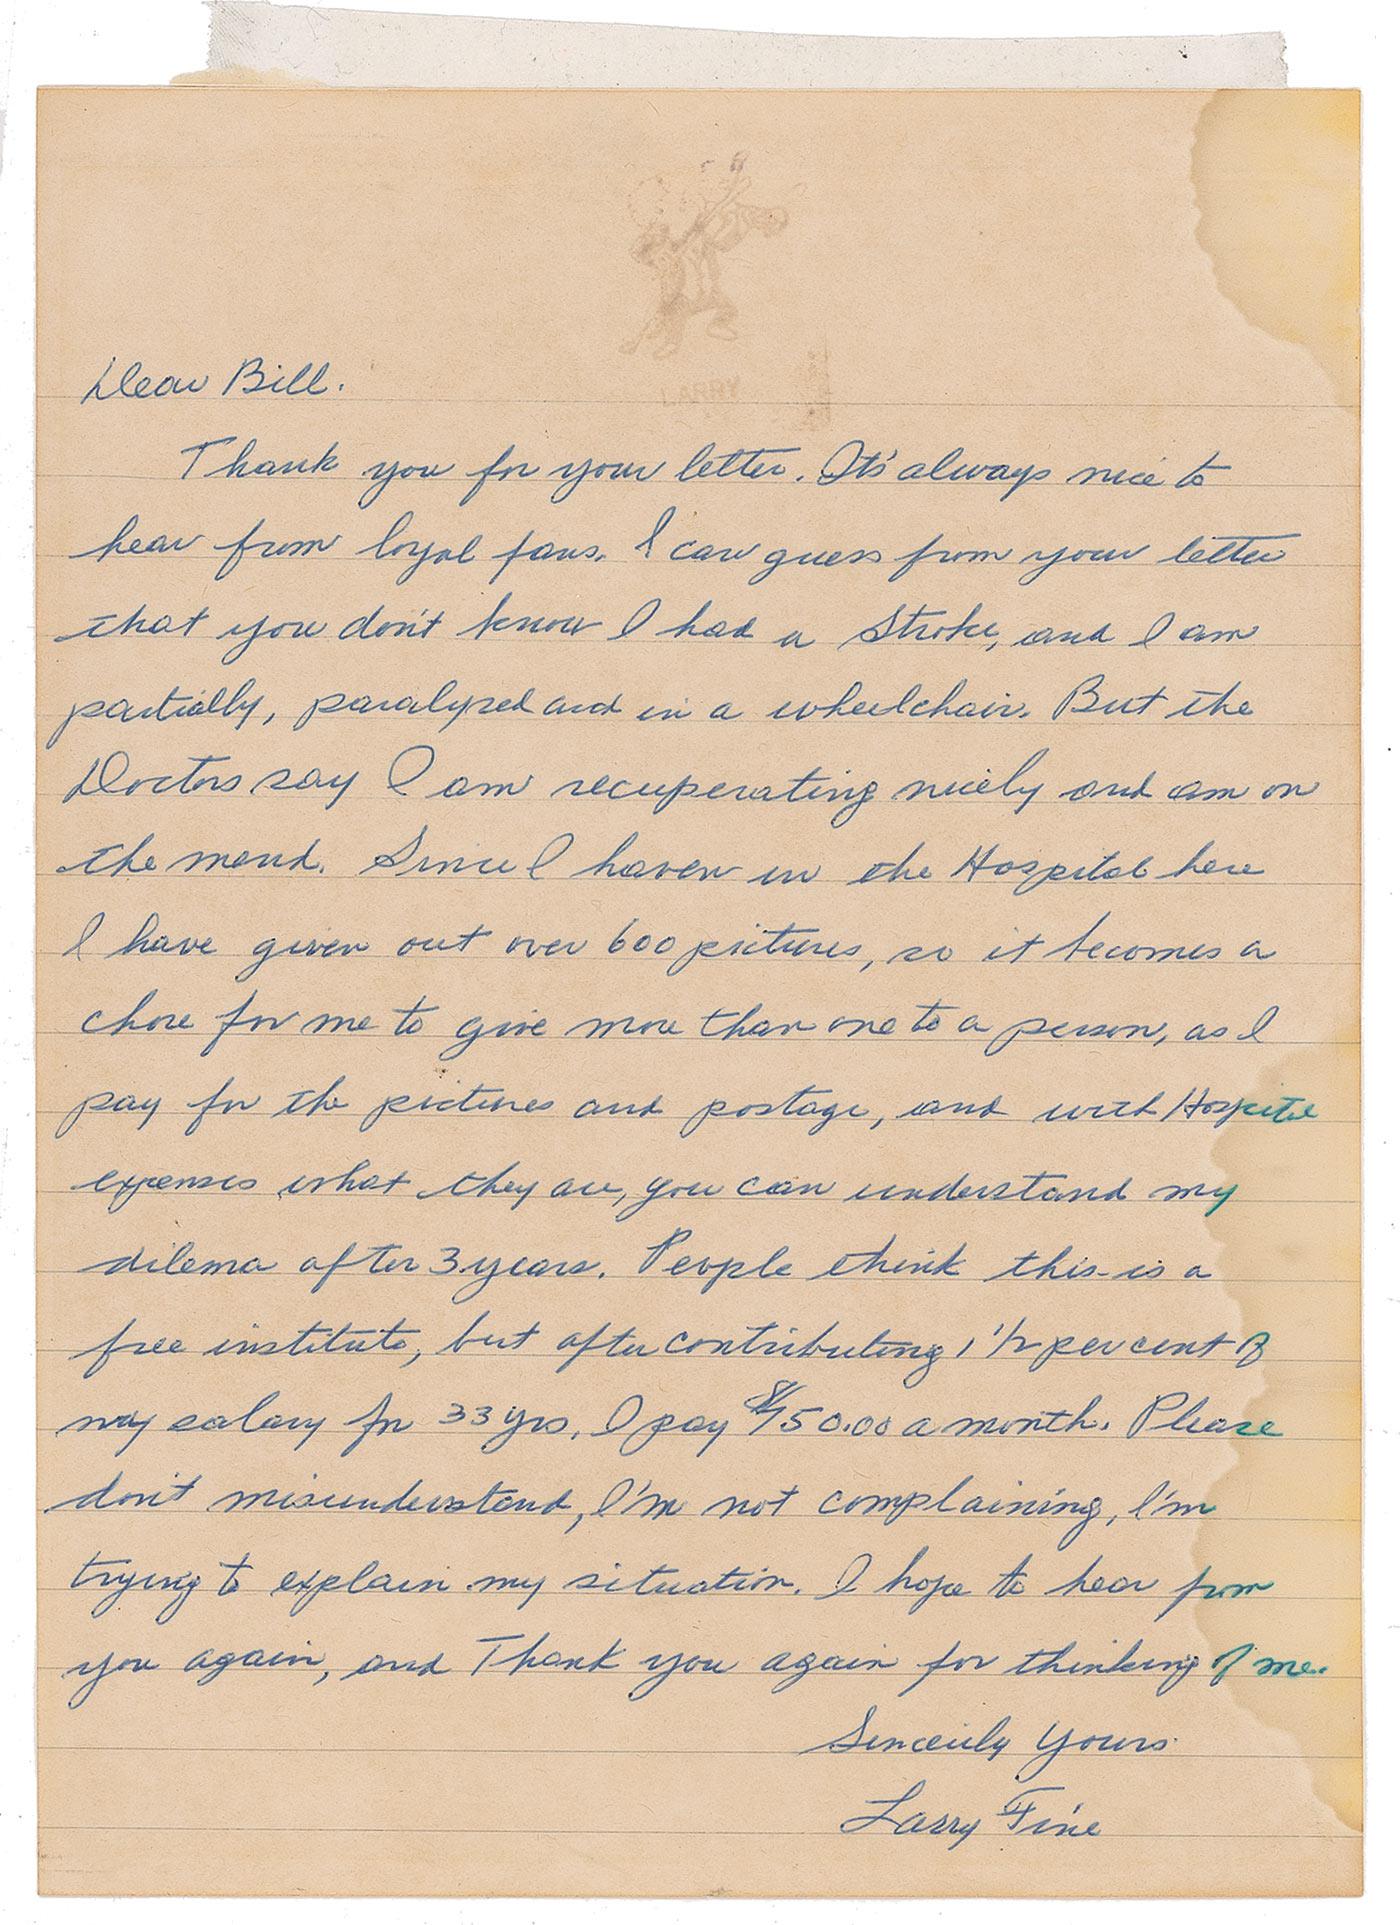 LARRY
Dear Bill.
Thank you for your letter. Its' always nice to
hear from loyal fans. I can guess from your letter
that you don't know I had a Stroke, and I am
partially, paralyzed and in a wheelchair. But the
Doctors say I am recuperating nicely and am on
the mend. Since I haven in the Hospital here
I have given out over 600 pictures, so it becomes a
chore for me to give more than one to a person, as I
pay for the pictures and postage, and with Hospital
expenses what they are, you can understand my
dilema after 3 years. People think this is a
free institute, but after contributing 1 1/2 percent of
my salary for 33 yrs, I pay $750.00 a month. Please
don't misunderstand, I'm not complaining, I'm
trying to explain my situation. I hope to hear from
you again, and Thank you again for thinking of me.
Sincerely Yours
Larry Fine